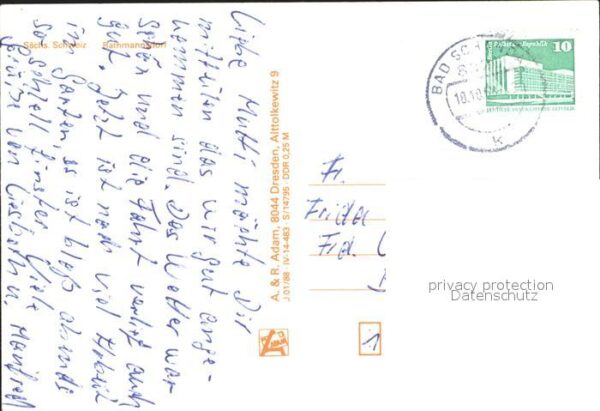 Sächs. Schweiz
Liebe Mutti möchte Dir
mitteilen das wir gut ange-
kommen sind. Das Wetter war
schön und die Fahrt verlief auch
gut. Jetzt ist noch viel Arbeit
im Garten, es ist bloß abends
so schnell finster. Viele
Grüße von Manfred
A. & R. Adam, 8044 Dresden, Alttolkewitz 9
J 01/88 · IV-14-483 · S/14795 · DDR 0,25 M
BAD SC
10
Fr.
Frieda
1
privacy protection
Datenschutz